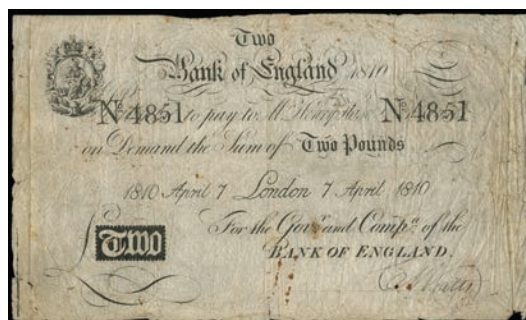 Two
Bank of England 1810
No 4851 to pay to Mr Henry No 4851
on Demand the Sum of Two Pounds
1810 April 7 London 7 April 1810
For the Govr. and Compa. of the
£ Two BANK OF ENGLAND.